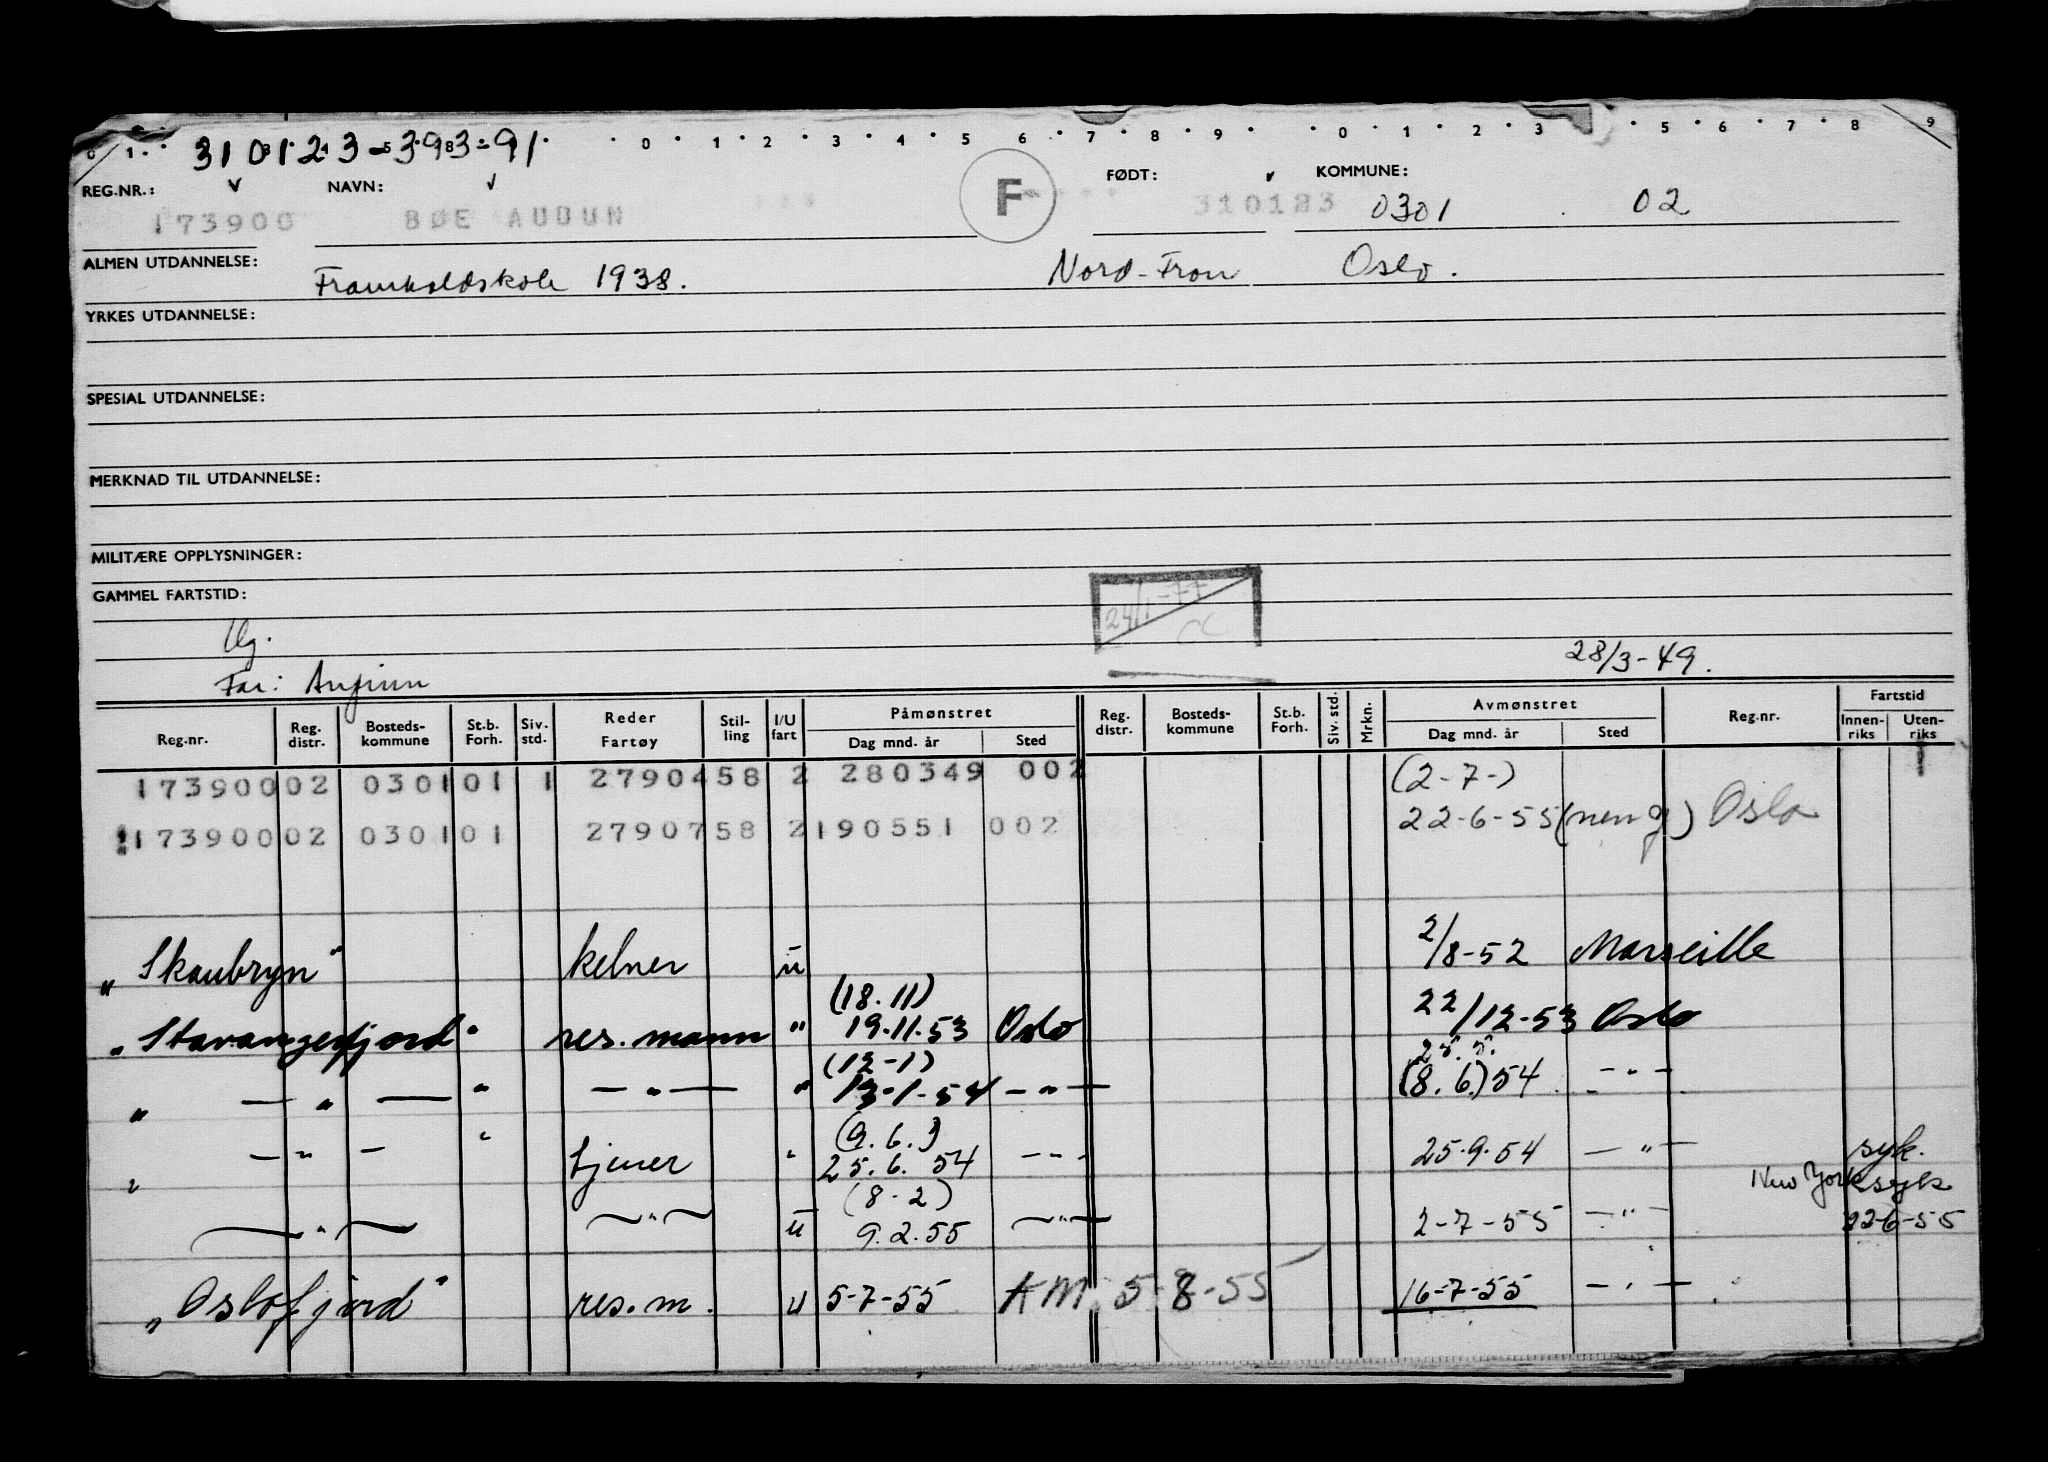 0 1 310123-39391 0 1 2 3 4 5 6 7 8 9 0 1 2 3 5 6 7 8 9
REG.NR.: NAVN: F FØDT: KOMMUNE:
173900 BØE AUDUN 310123 0301 02
ALMEN UTDANNELSE: Framhaldskole 1938. Nord-Fron Oslo.
YRKES UTDANNELSE:
SPESIAL UTDANNELSE:
MERKNAD TIL UTDANNELSE:
MILITÆRE OPPLYSNINGER:
GAMMEL FARTSTID:
24/1-77
Ug.
28/3-49.
Far: Anfinn
Reg.nr. Reg. distr. Bosteds-kommune St.b. Forh. Siv. std. Reder Fartøy Stil-ling I/U fart Påmønstret Dag mnd. år Sted Reg. distr. Bosteds-kommune St.b. Forh. Siv. std. Mrkn. Avmønstret Dag mnd. år Sted Reg.nr. Fartstid Innen-riks Uten-riks
173900 02 0301 01 1 27904 58 2 280349 002 (2-7-)
173900 02 0301 01 27907 58 2 190551 002 22-6-55 Oslo
"Skaubryn" kelner u 2/8-52 Marseille
(18.11)
"Stavangerfjord" res. mann " 19.11.53 Oslo 22/12-53 Oslo
(12-1) 25.5.
" — " — " — " — " 13-1-54 — " — (8.6.) 54 — " —
(9.6.)
" — " — " tjener " 25.6.54 — " — 25.9.54 — " — syk.
(8-2) New York syk
— " — — " — u 9.2.55 — " — 2-7-55 — " — 22-6-55
"Oslofjord" res. m. u 5-7-55 AM. 5-8-55 16-7-55 — " —